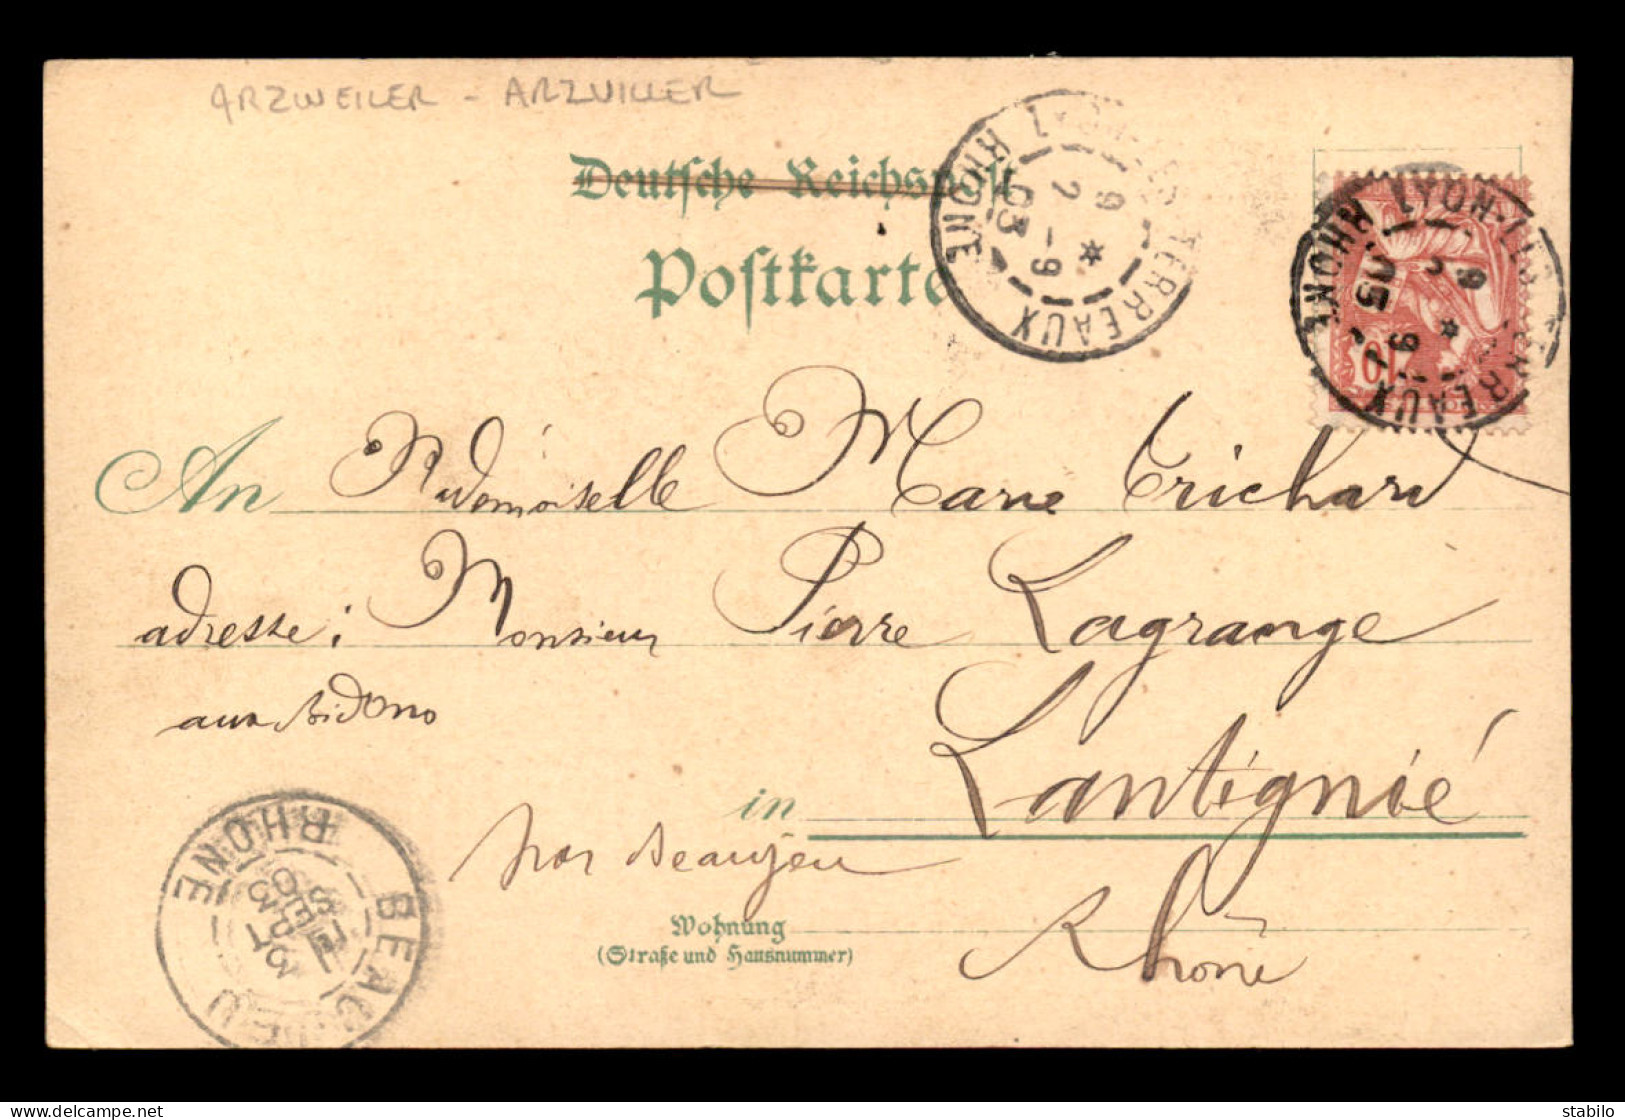 ARZWEILER - ARZVILLER
Deutsche Reichspost
Postkarte
LYON-LES-TERREAUX
RHONE
9
2 - 9
03
LYON-LES-TERREAUX
RHONE
10
An Mademoiselle Marie Trichard
adresse : Monsieur Pierre Lagrange
aux
in Lantignié
par Beaujeu
Rhône
Wohnung
(Straße und Hausnummer)
BEAUJEU
RHONE
3
SEPT
03
stabilo